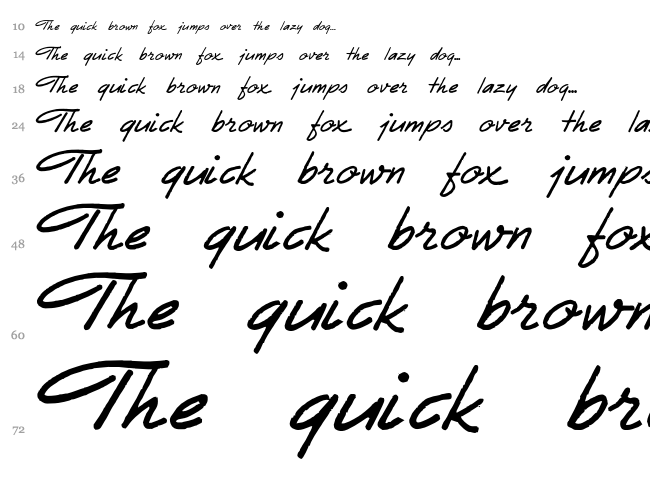 10 The quick brown fox jumps over the lazy dog...
14 The quick brown fox jumps over the lazy dog...
18 The quick brown fox jumps over the lazy dog...
24 The quick brown fox jumps over the la
36 The quick brown fox jumps
48 The quick brown fox
60 The quick brown
72 The quick br